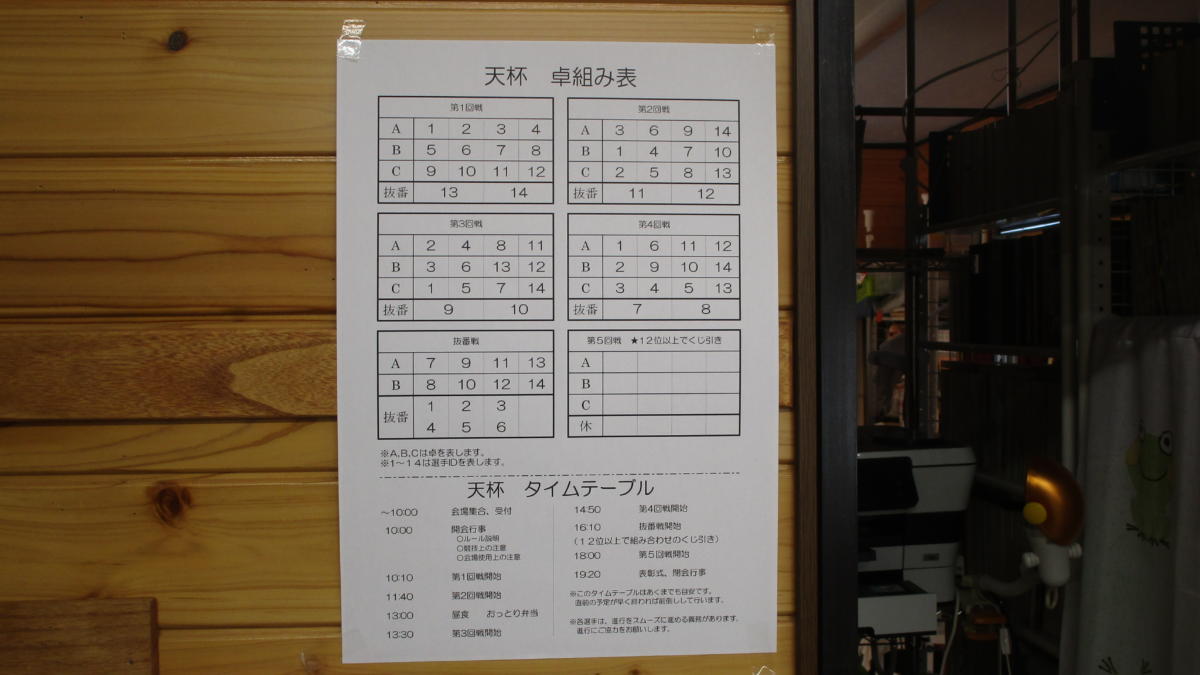 天杯　卓組み表
第1回戦
A 1 2 3 4
B 5 6 7 8
C 9 10 11 12
抜番 13 14
第2回戦
A 3 6 9 14
B 1 4 7 10
C 2 5 8 13
抜番 11 12
第3回戦
A 2 4 8 11
B 3 6 13 12
C 1 5 7 14
抜番 9 10
第4回戦
A 1 6 11 12
B 2 9 10 14
C 3 4 5 13
抜番 7 8
抜番戦
A 7 9 11 13
B 8 10 12 14
抜番
1 2 3
4 5 6
第5回戦　★12位以上でくじ引き
A
B
C
休
※A,B,Cは卓を表します。
※1～14は選手IDを表します。
天杯　タイムテーブル
～10:00 会場集合、受付
10:00 開会行事
○ルール説明
○競技上の注意
○会場使用上の注意
10:10 第1回戦開始
11:40 第2回戦開始
13:00 昼食　おっとり弁当
13:30 第3回戦開始
14:50 第4回戦開始
16:10 抜番戦開始
（12位以上で組み合わせのくじ引き）
18:00 第5回戦開始
19:20 表彰式、閉会行事
※このタイムテーブルはあくまでも目安です。
直前の予定が早く終われば前倒しして行います。
※各選手は、進行をスムーズに進める義務があります。
進行にご協力をお願いします。